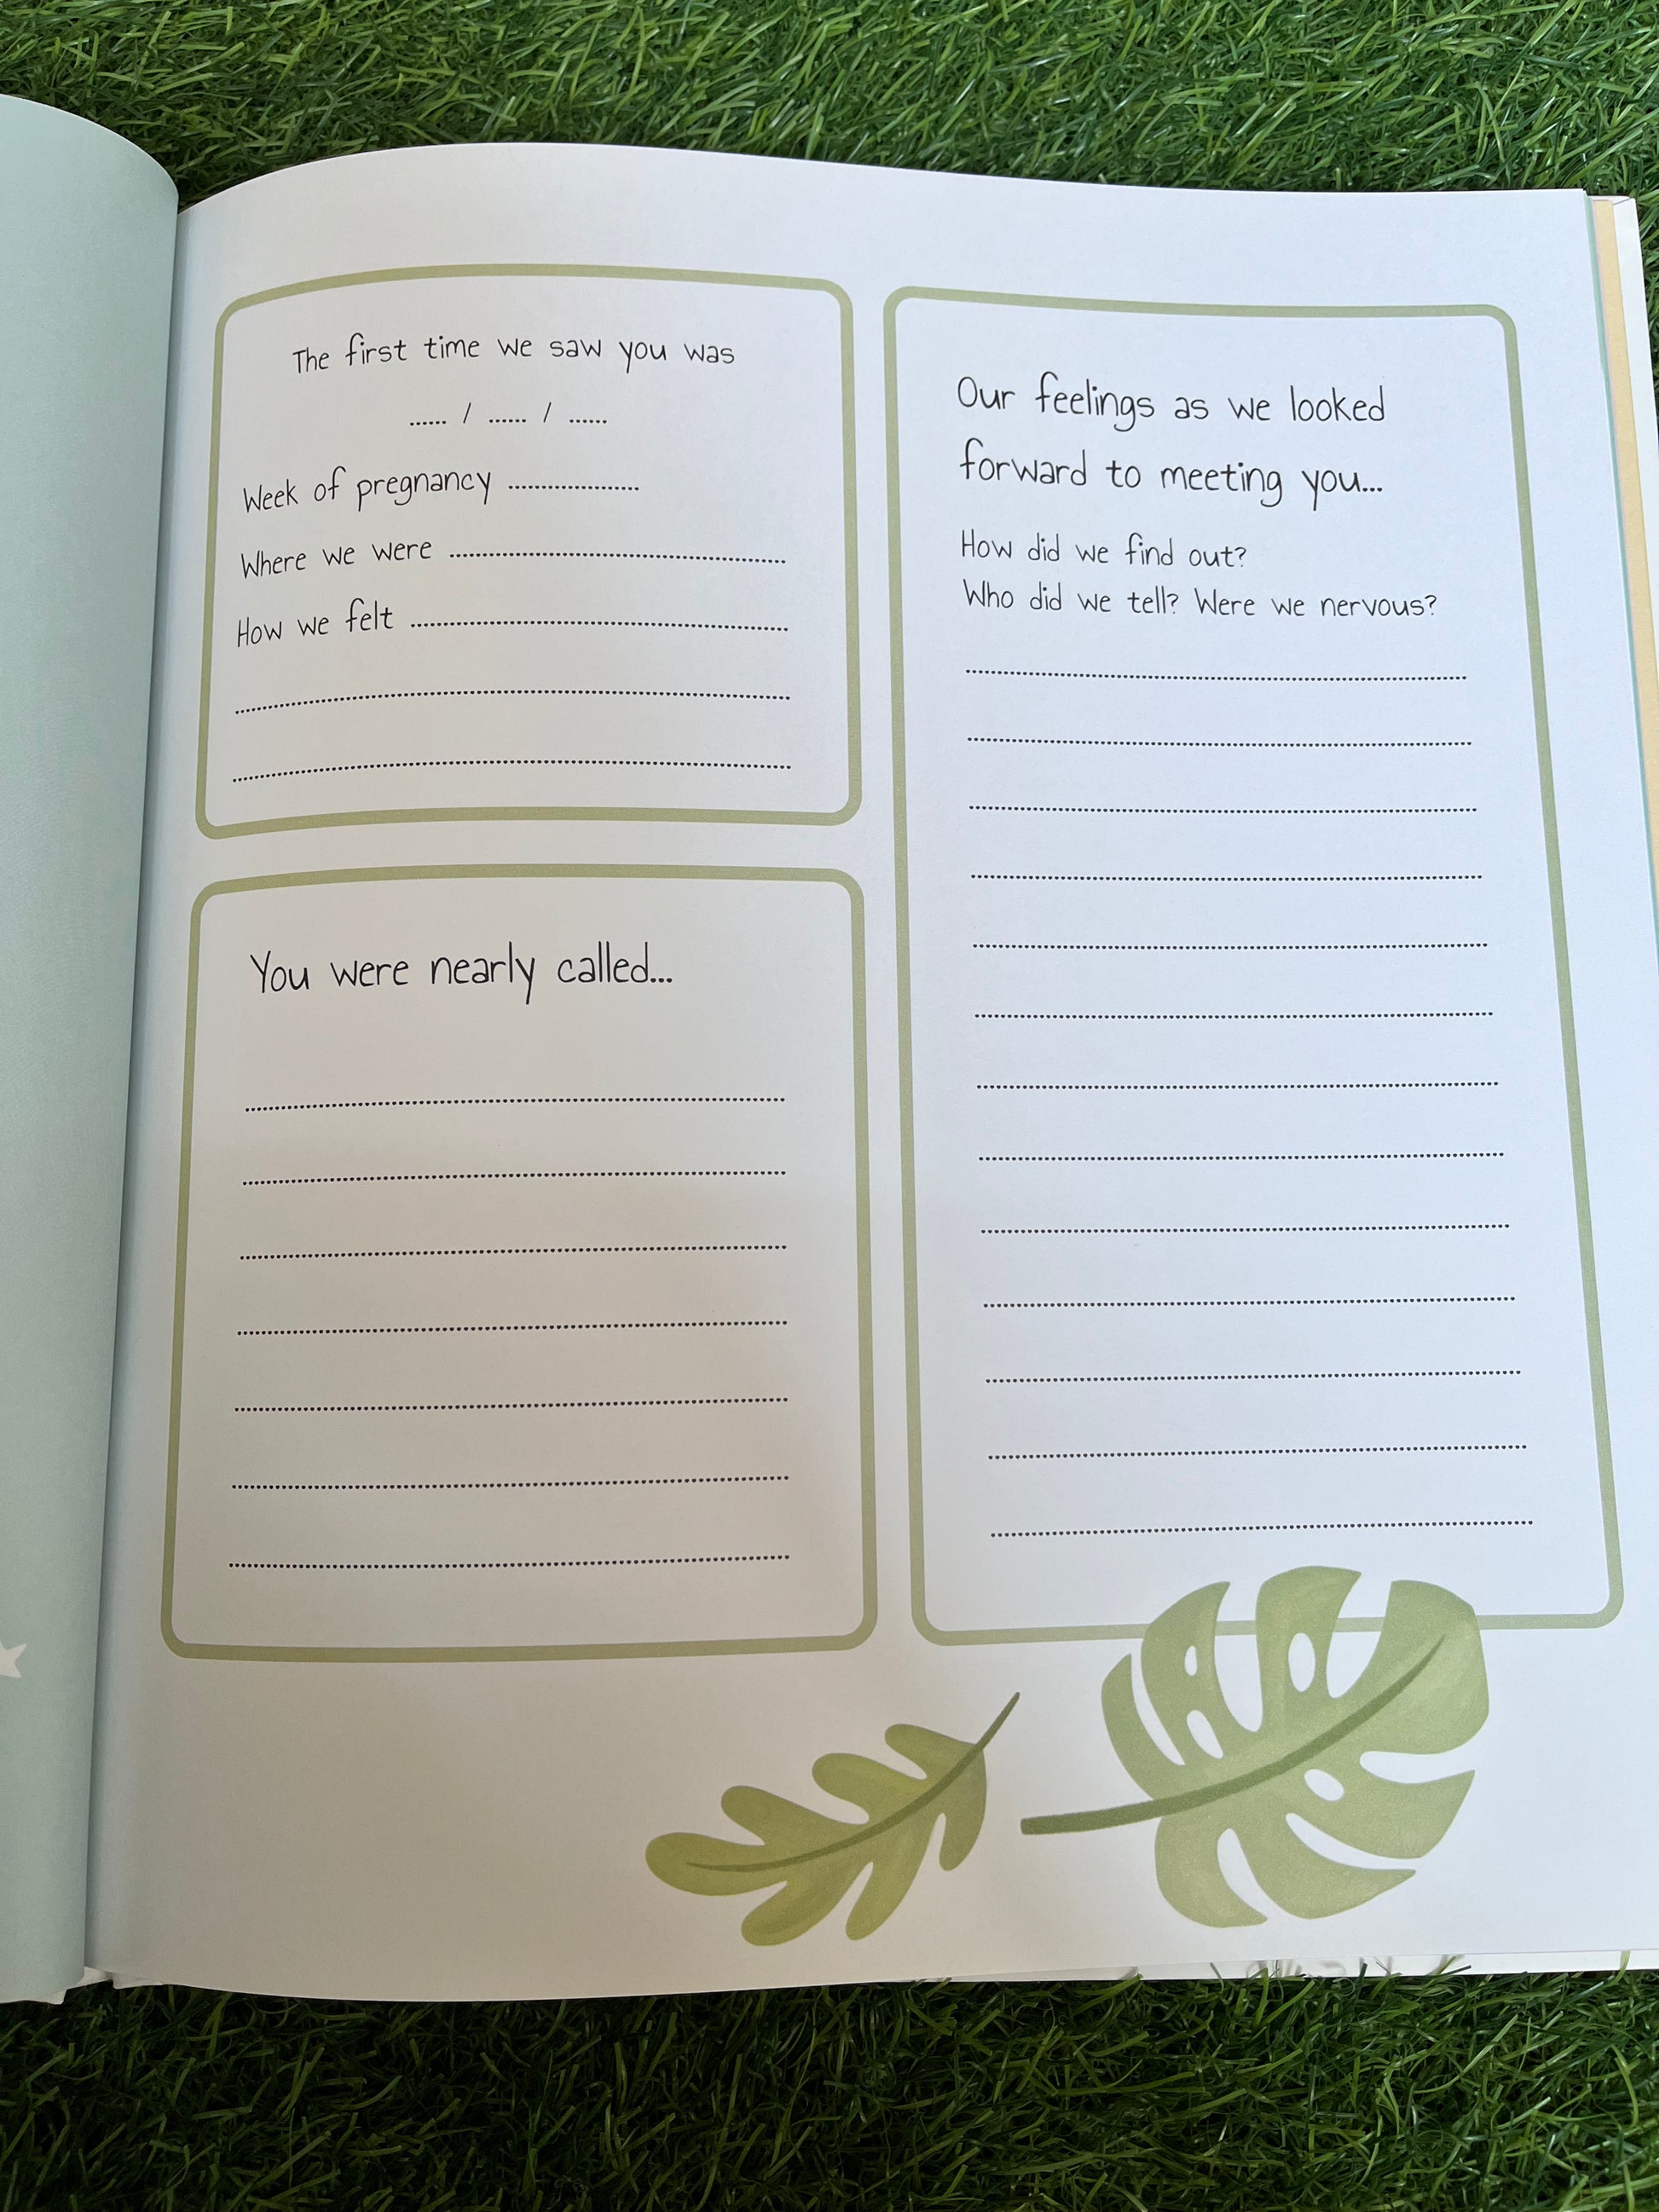 The first time we saw you was
...... / ...... / ......
Week of pregnancy ....................
Where we were ....................
How we felt ....................
You were nearly called...
Our feelings as we looked
forward to meeting you...
How did we find out?
Who did we tell? Were we nervous?